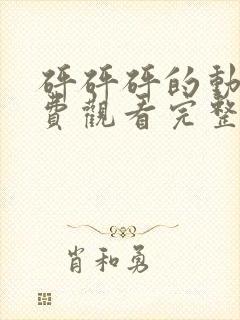 砰砰砰的動
費觀看完整
肖和勇